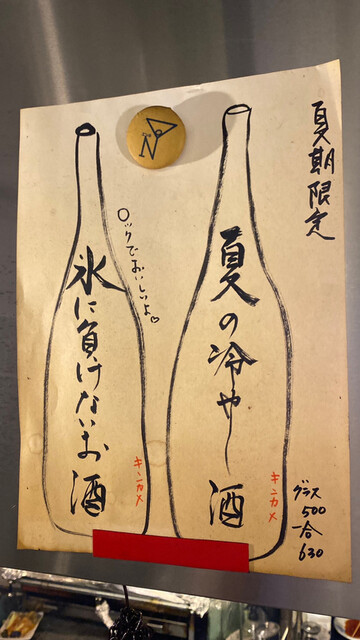 夏期限定
夏の冷や〜酒
キンカメ
グラス
500
一合
630
ロックでおいしいよ♡
氷に負けないお酒
キンカメ
N